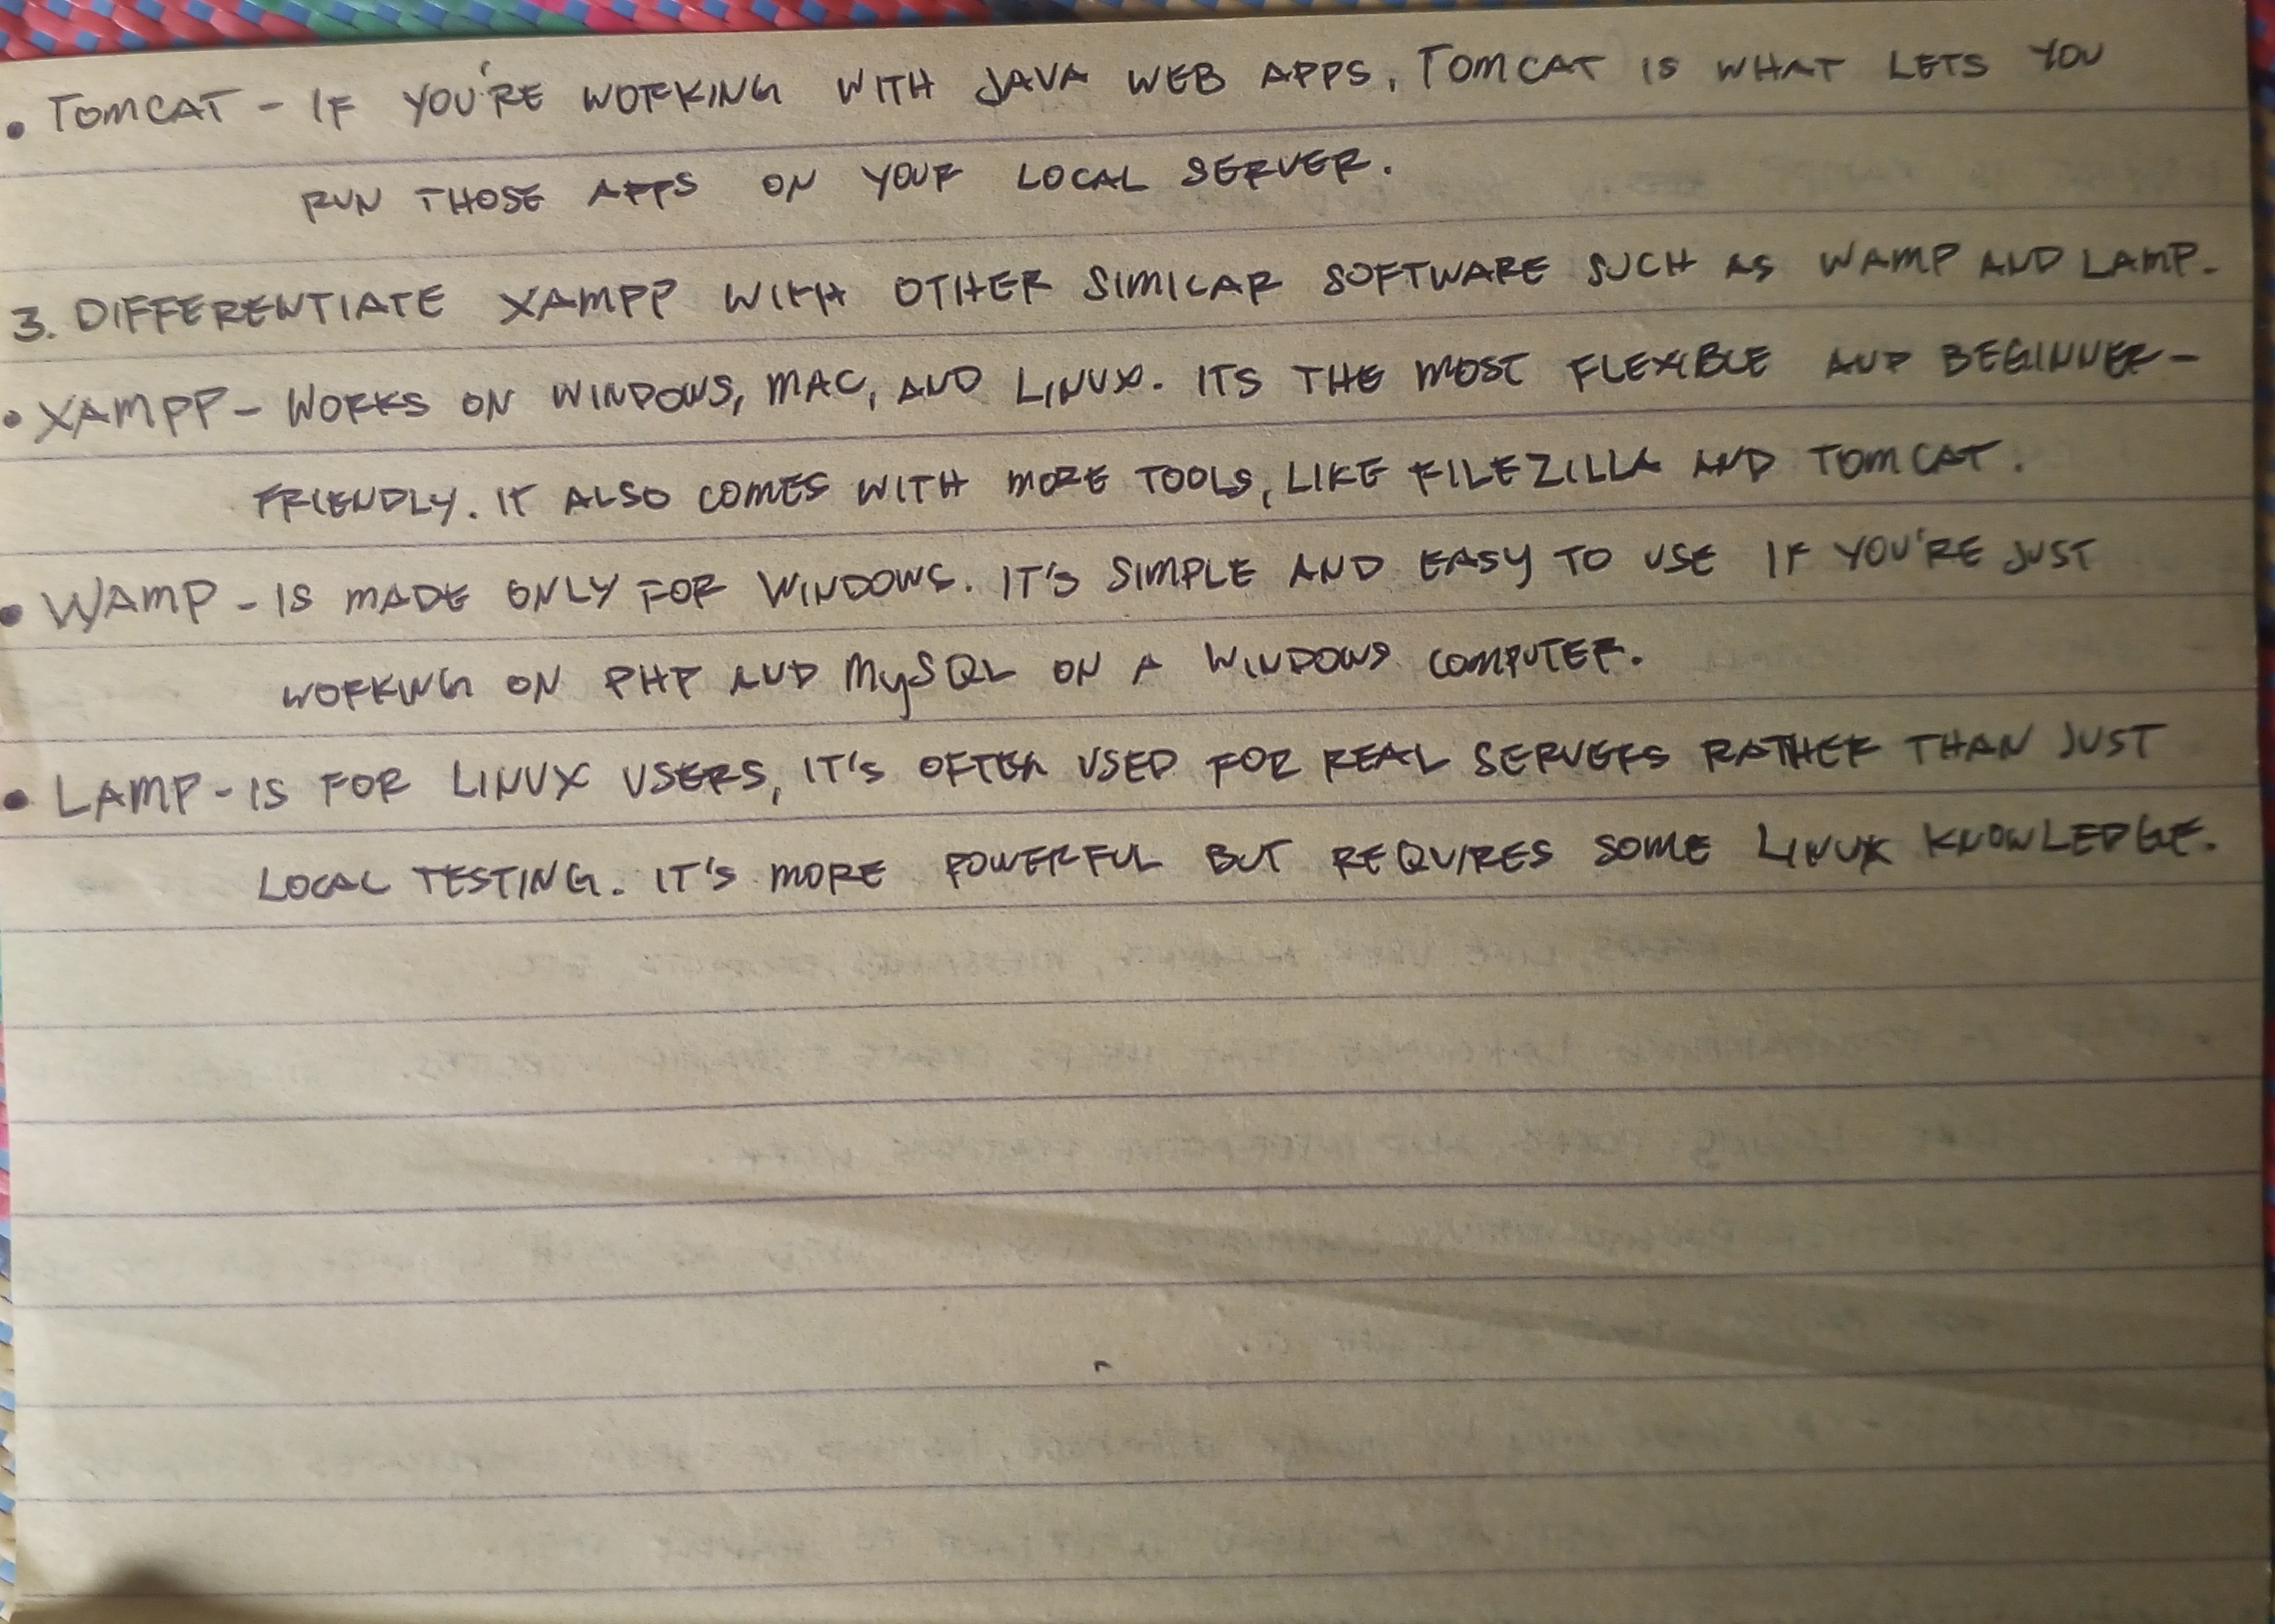 • TOMCAT - IF YOU'RE WORKING WITH JAVA WEB APPS, TOMCAT IS WHAT LETS YOU
RUN THOSE APPS ON YOUR LOCAL SERVER.
3. DIFFERENTIATE XAMPP WITH OTHER SIMILAR SOFTWARE SUCH AS WAMP AND LAMP.
• XAMPP - WORKS ON WINDOWS, MAC, AND LINUX. ITS THE MOST FLEXIBLE AND BEGINNER-
FRIENDLY. IT ALSO COMES WITH MORE TOOLS, LIKE FILEZILLA AND TOMCAT.
• WAMP - IS MADE ONLY FOR WINDOWS. IT'S SIMPLE AND EASY TO USE IF YOU'RE JUST
WORKING ON PHP AND MySQL ON A WINDOWS COMPUTER.
• LAMP - IS FOR LINUX USERS, IT'S OFTEN USED FOR REAL SERVERS RATHER THAN JUST
LOCAL TESTING. IT'S MORE POWERFUL BUT REQUIRES SOME LINUX KNOWLEDGE.